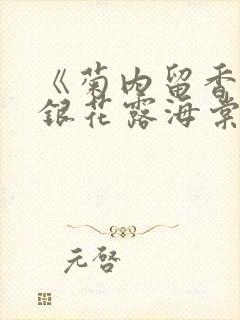 《菊内留香
銀花露海棠
元啓